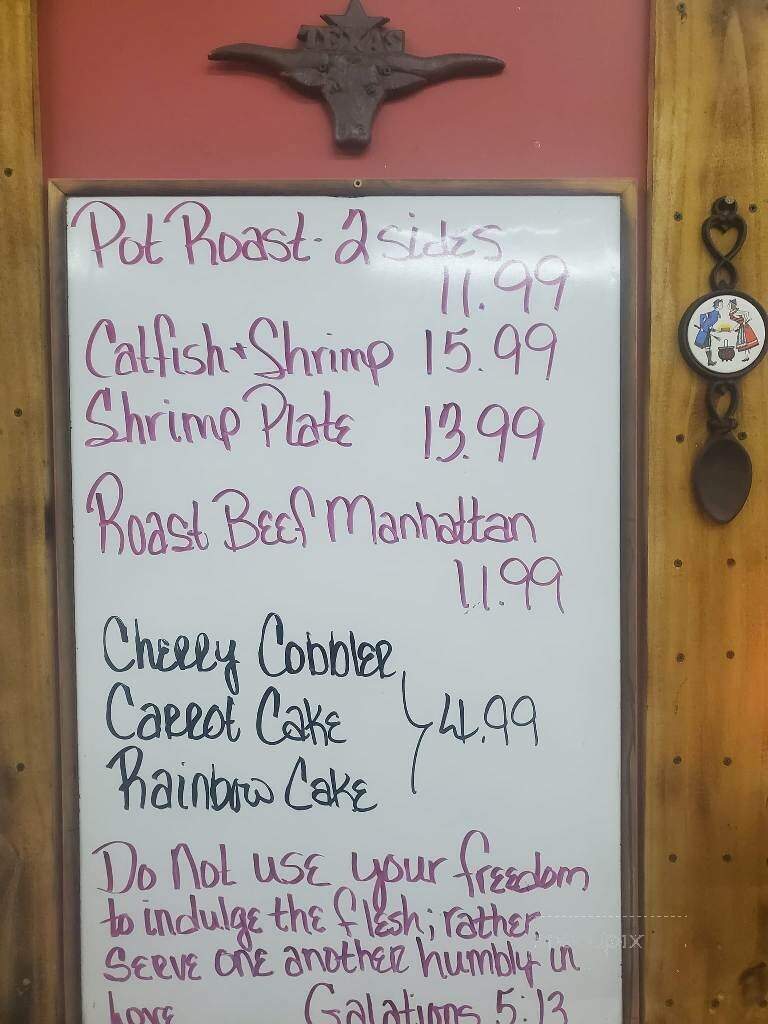 TEXAS
Pot Roast - 2 sides
11.99
Catfish + Shrimp 15.99
Shrimp Plate 13.99
Roast Beef Manhattan
11.99
Cherry Cobbler
Carrot Cake 4.99
Rainbow Cake
Do Not use your freedom
to indulge the flesh; rather,
serve one another humbly in
love Galations 5:13